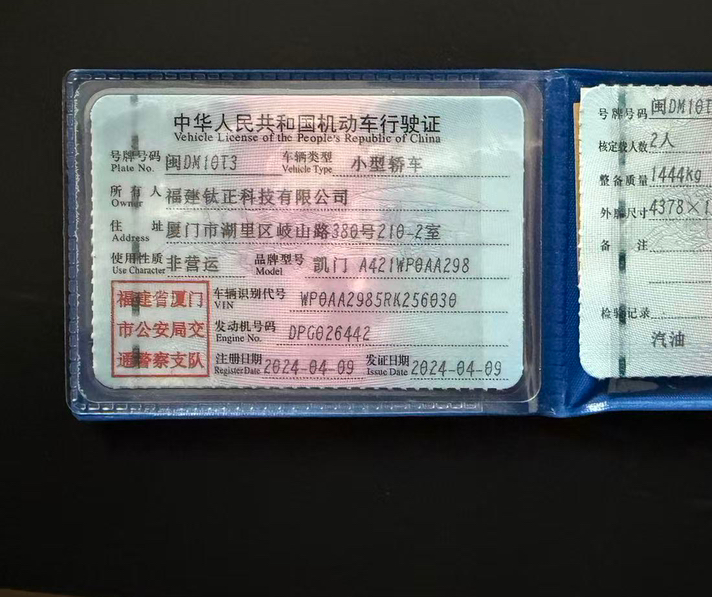 中华人民共和国机动车行驶证
Vehicle License of the People's Republic of China
号牌号码 闽DM10T3 车辆类型 小型轿车
Plate No. Vehicle Type
所有人 福建钛正科技有限公司
Owner
住址 厦门市湖里区岐山路380号210-2室
Address
使用性质 非营运 品牌型号 凯门 A421WP0AA298
Use Character Model
福建省厦门
市公安局交
通警察支队
车辆识别代号 WP0AA2985RK256030
VIN
发动机号码 DPG026442
Engine No.
注册日期 2024-04-09 发证日期 2024-04-09
Register Date Issue Date
号牌号码 闽DM10T
核定载人数 2人
整备质量 1444kg
外廓尺寸 4378×1
备注
检验记录
汽油